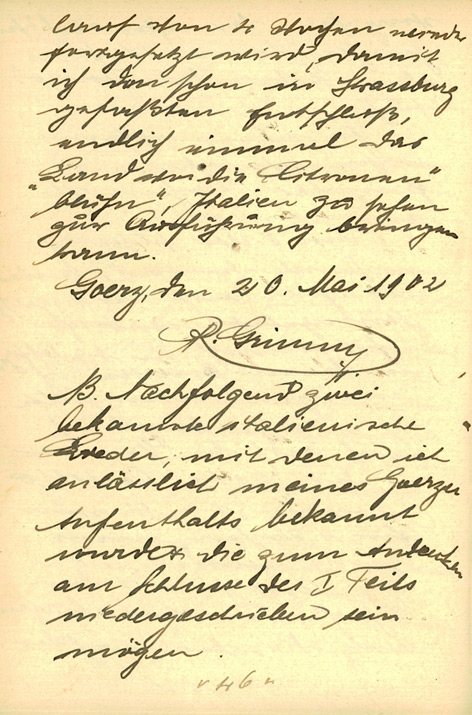 lauf von 4 Wochen wieder
fortgesetzt wird, damit
ich den schon in Strassburg
gefaßten Entschluß,
endlich einmal das
"Land wo die Citronen"
blühn", Italien zu sehen
zur Ausführung bringen
kann.
Goerz, den 20. Mai 1902
R. Grimm
NB. Nachfolgend zwei
bekannte italienische
Lieder, mit denen ich
anlässlich meines Goerzer
Aufenthalts bekannt
wurde & die zum Andenken
am Schlusse des I Teils
niedergeschrieben sein
mögen.
"46"